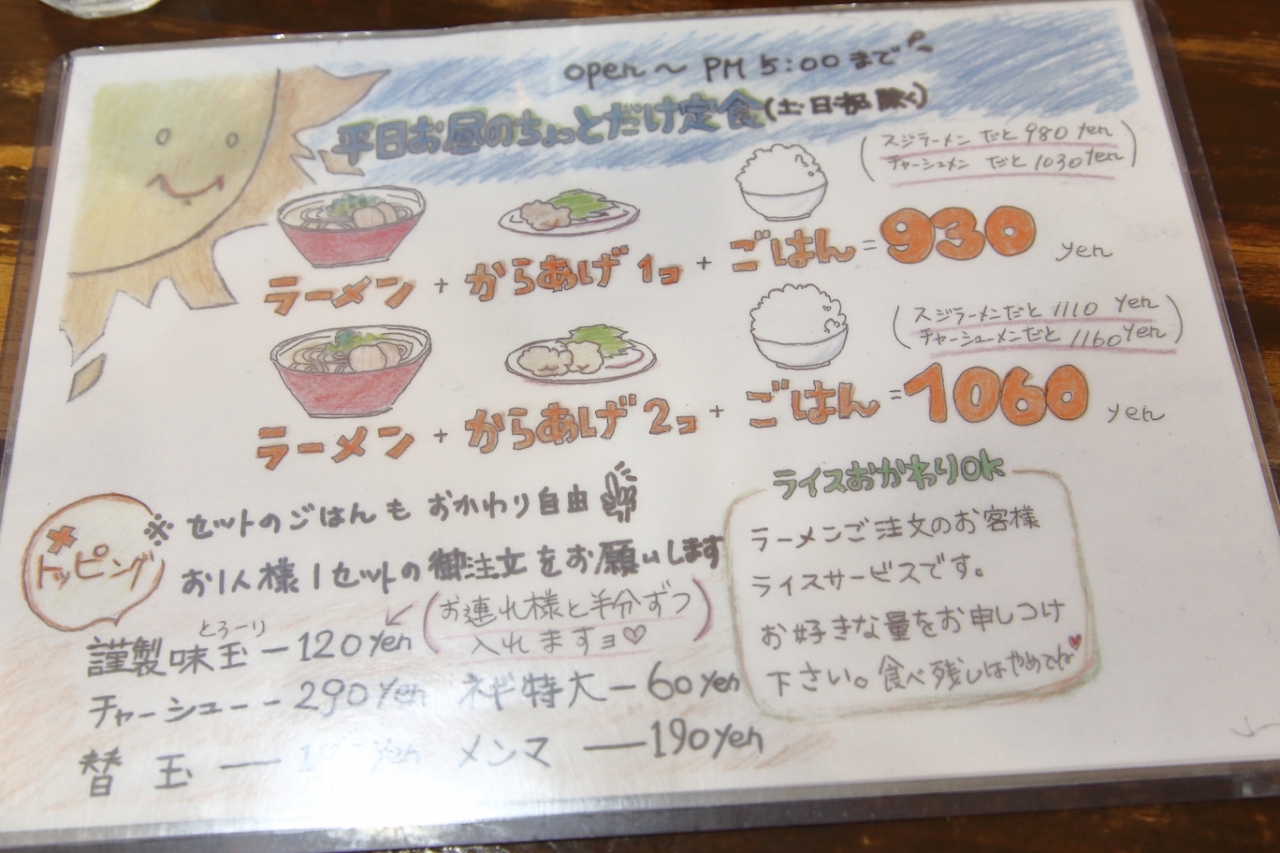 open～PM 5:00まで
平日お昼のちょっとだけ定食(土日祝除く)
(スジラーメンだと980yen
チャーシュメンだと1030yen)
ラーメン + からあげ1コ + ごはん = 930 yen
(スジラーメンだと1110yen
チャーシューメンだと1160yen)
ラーメン + からあげ2コ + ごはん = 1060 yen
※セットのごはんもおかわり自由
お1人様1セットの御注文をお願いします
トッピング
とろーり
謹製味玉ー120yen
(お連れ様と半分ずつ
入れますョ♡)
チャーシューー290yen
ネギ特大ー60yen
替玉ー
メンマー190yen
ライスおかわりOK
ラーメンご注文のお客様
ライスサービスです。
お好きな量をお申しつけ
下さい。食べ残しはやめてね